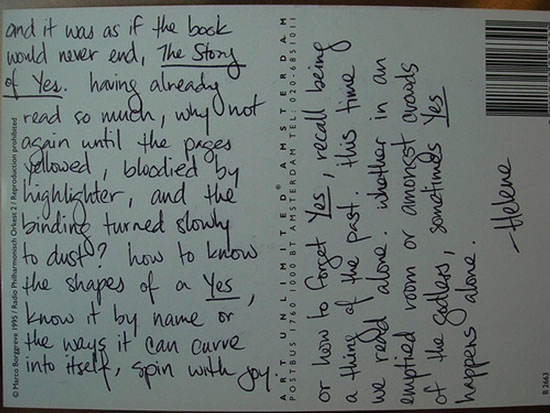 and it was as if the book
would never end, The Story
of Yes. having already
read so much, why not
again until the pages
yellowed, bloodied by
highlighter, and the
binding turned slowly
to dust? how to know
the shapes of a Yes,
know it by name or
the ways it can curve
into itself, spin with joy.
or how to forget Yes, recall being
a thing of the past. this time
we read alone. whether in an
emptied room or amongst crowds
of the godless, sometimes Yes
happens alone.
—Helene
© Marco Borggreve 1995 / Radio Philharmonisch Orkest 2 / Reproduction prohibited
ART UNLIMITED® AMSTERDAM
POSTBUS 11760 1000 BT AMSTERDAM TEL: 020-6851011
B 2663